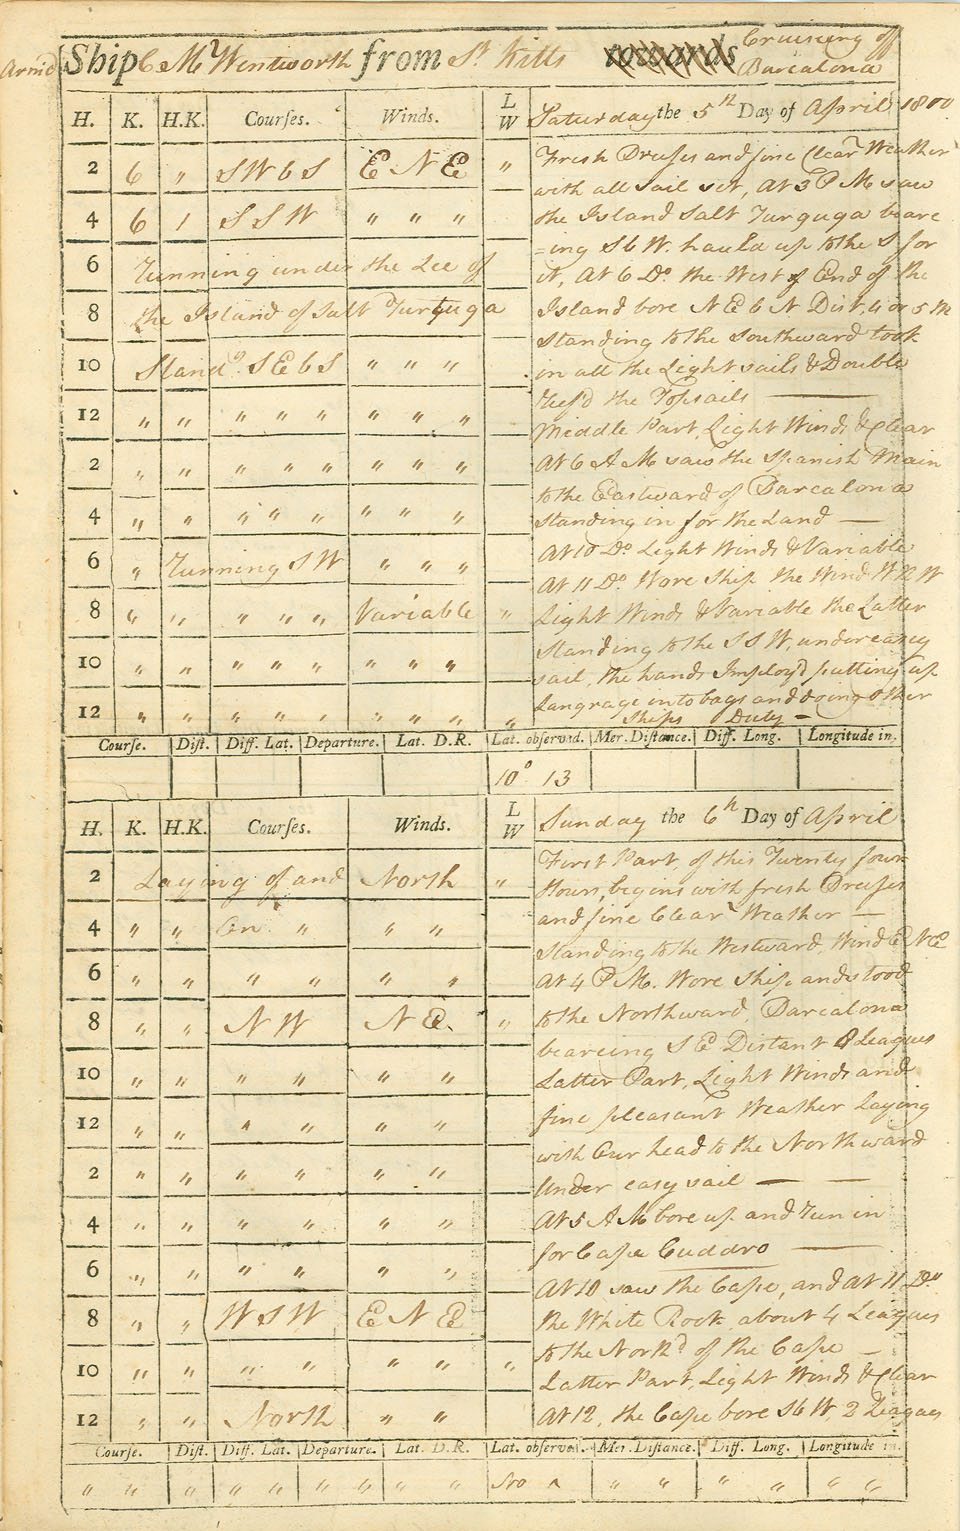 Armd Ship C. Mr Wentworth from St. Kitts towards Cruising of
Barcalona
H. K. H.K. Courses. Winds. L W Saturday the 5th Day of April 1800
2 6 " S W b S E N E "
4 6 1 S S W " " "
6 Running under the Lee of
8 the Island of Salt Turtuga
10 Standg. S E b S " " "
12 " " " " " " " "
2 " " " " " " " "
4 " " " " " " " "
6 " Running S W " " "
8 " " " " " Variable "
10 " " " " " " " "
12 " " " " " " " " "
Fresh Breises and fine Clear Weather
with all sail set, At 3 P M saw
the Island Salt Turguga beare
=ing S b W. hauld up to the S for
it, At 6 Do. the West End of the
Island bore N E b N Dist. 4 or 5 M
standing to the Southward took
in all the Light sails & Double
Reef'd the Topsails
Middle Part, Light Winds & Clear
At 6 A M saw the Spanish Main
to the Eastward of Barcalona
Standing in for the Land —
At 10 Do Light Winds & Variable
At 11 Do. Wore Ship the Wind W N W
Light Winds & Variable the Latter
Standing to the S S W, under easey
sail, the hands Imploy'd putting up
Langrage into bags and doing other
Ships Duty —
Course. Dist. Diff. Lat. Departure. Lat. D.R. Lat. observed. Mer. Distance. Diff. Long. Longitude in.
10° 13
H. K. H.K. Courses. Winds. L W Sunday the 6h Day of April
2 Laying of and North "
4 " " On " " "
6 " " " " " "
8 " " N W N E. "
10 " " " " " "
12 " " " " " "
2 " " " " " "
4 " " " " " "
6 " " " " " "
8 " " W S W E N E
10 " " " " " " "
12 " " North " "
First Part of this Twenty four
Hours, begins with fresh Breises
and fine Clear Weather —
Standing to the Westward, Wind E N E
At 4 P M. Wore Ship and stood
to the Northward, Barcalona
beareing S E Distant 8 Leagues
Latter Part, Light Winds and
fine pleasant Weather Laying
with Our head to the Northward
Under easy sail — —
At 5 A M bore up and Run in
for Cape Cuddro
At 10 saw the Cape, and At 11 Do
the White Rock, about 4 Leagues
to the Northd of the Cape —
Latter Part, Light Winds & Clear
At 12, the Cape bore S b W, 2 Leagues
Course. Dist. Diff. Lat. Departure. Lat. D.R. Lat. observed. Mer. Distance. Diff. Long. Longitude in.
" " " " " " " " " No " " " " " " "